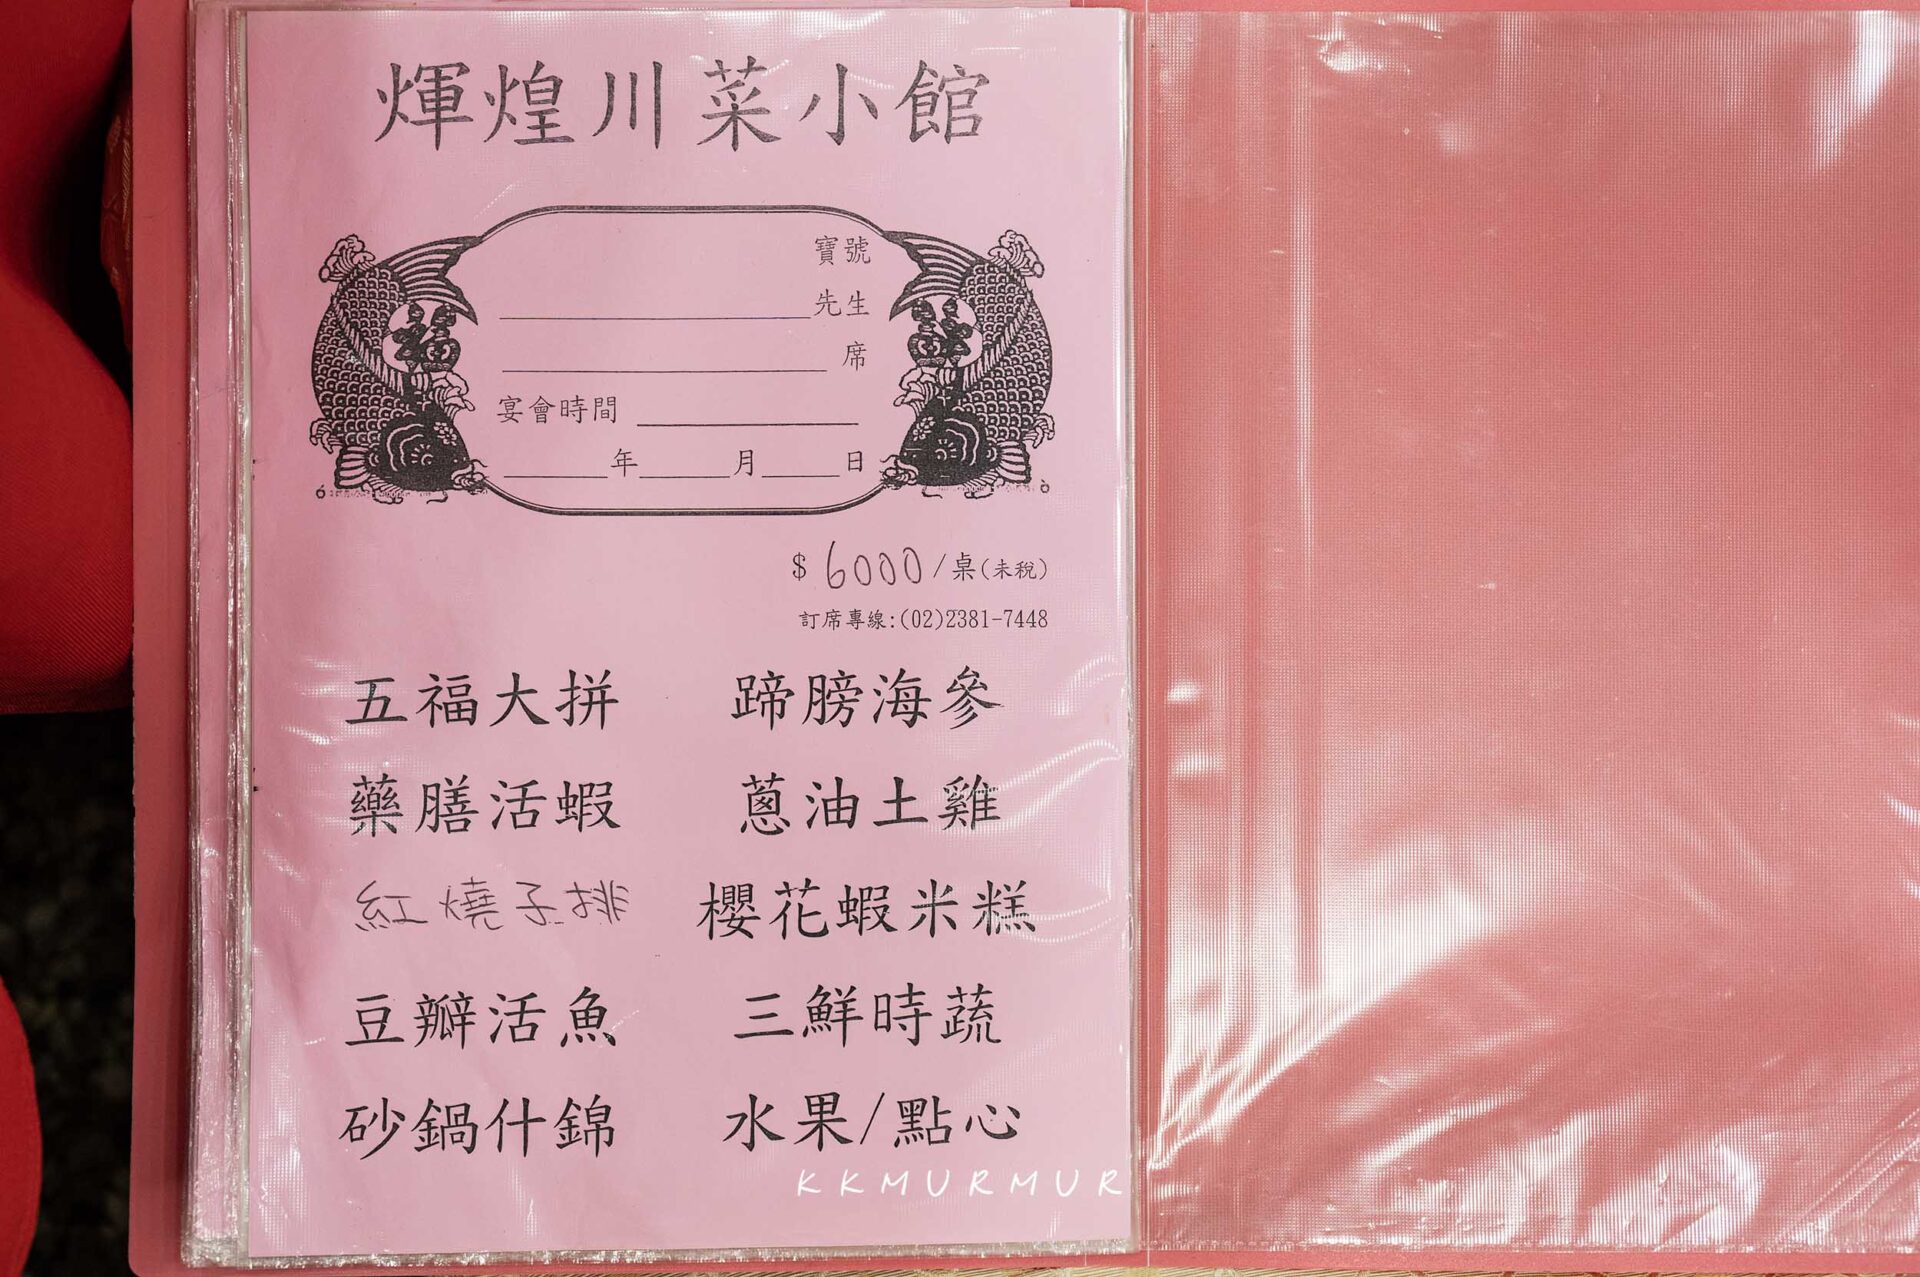 輝煌川菜小館
寶號
先生
席
宴會時間
年 月 日
$ 6000/桌(未稅)
訂席專線:(02)2381-7448
五福大拼 蹄膀海參
藥膳活蝦 蔥油土雞
紅燒子排 櫻花蝦米糕
豆瓣活魚 三鮮時蔬
砂鍋什錦 水果/點心
KKMURMUR